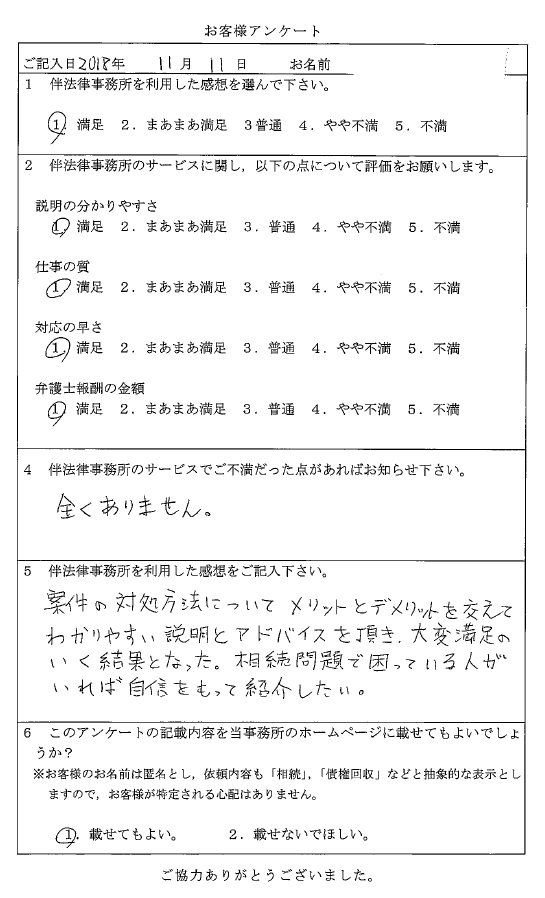 お客様アンケート
ご記入日2018年 11月 11日 お名前
1 伴法律事務所を利用した感想を選んで下さい。
1. 満足 2. まあまあ満足 3普通 4. やや不満 5. 不満
2 伴法律事務所のサービスに関し，以下の点について評価をお願いします。
説明の分かりやすさ
1. 満足 2. まあまあ満足 3. 普通 4. やや不満 5. 不満
仕事の質
1. 満足 2. まあまあ満足 3. 普通 4. やや不満 5. 不満
対応の早さ
1. 満足 2. まあまあ満足 3. 普通 4. やや不満 5. 不満
弁護士報酬の金額
1. 満足 2. まあまあ満足 3. 普通 4. やや不満 5. 不満
4 伴法律事務所のサービスでご不満だった点があればお知らせ下さい。
全くありません。
5 伴法律事務所を利用した感想をご記入下さい。
案件の対処方法について メリットとデメリットを交えて
わかりやすい説明とアドバイスを頂き、大変満足の
いく結果となった。相続問題で困っている人が
いれば自信をもって紹介したい。
6 このアンケートの記載内容を当事務所のホームページに載せてもよいでしょ
うか？
※お客様のお名前は匿名とし，依頼内容も「相続」，「債権回収」などと抽象的な表示とし
ますので，お客様が特定される心配はありません。
1. 載せてもよい。 2. 載せないでほしい。
ご協力ありがとうございました。